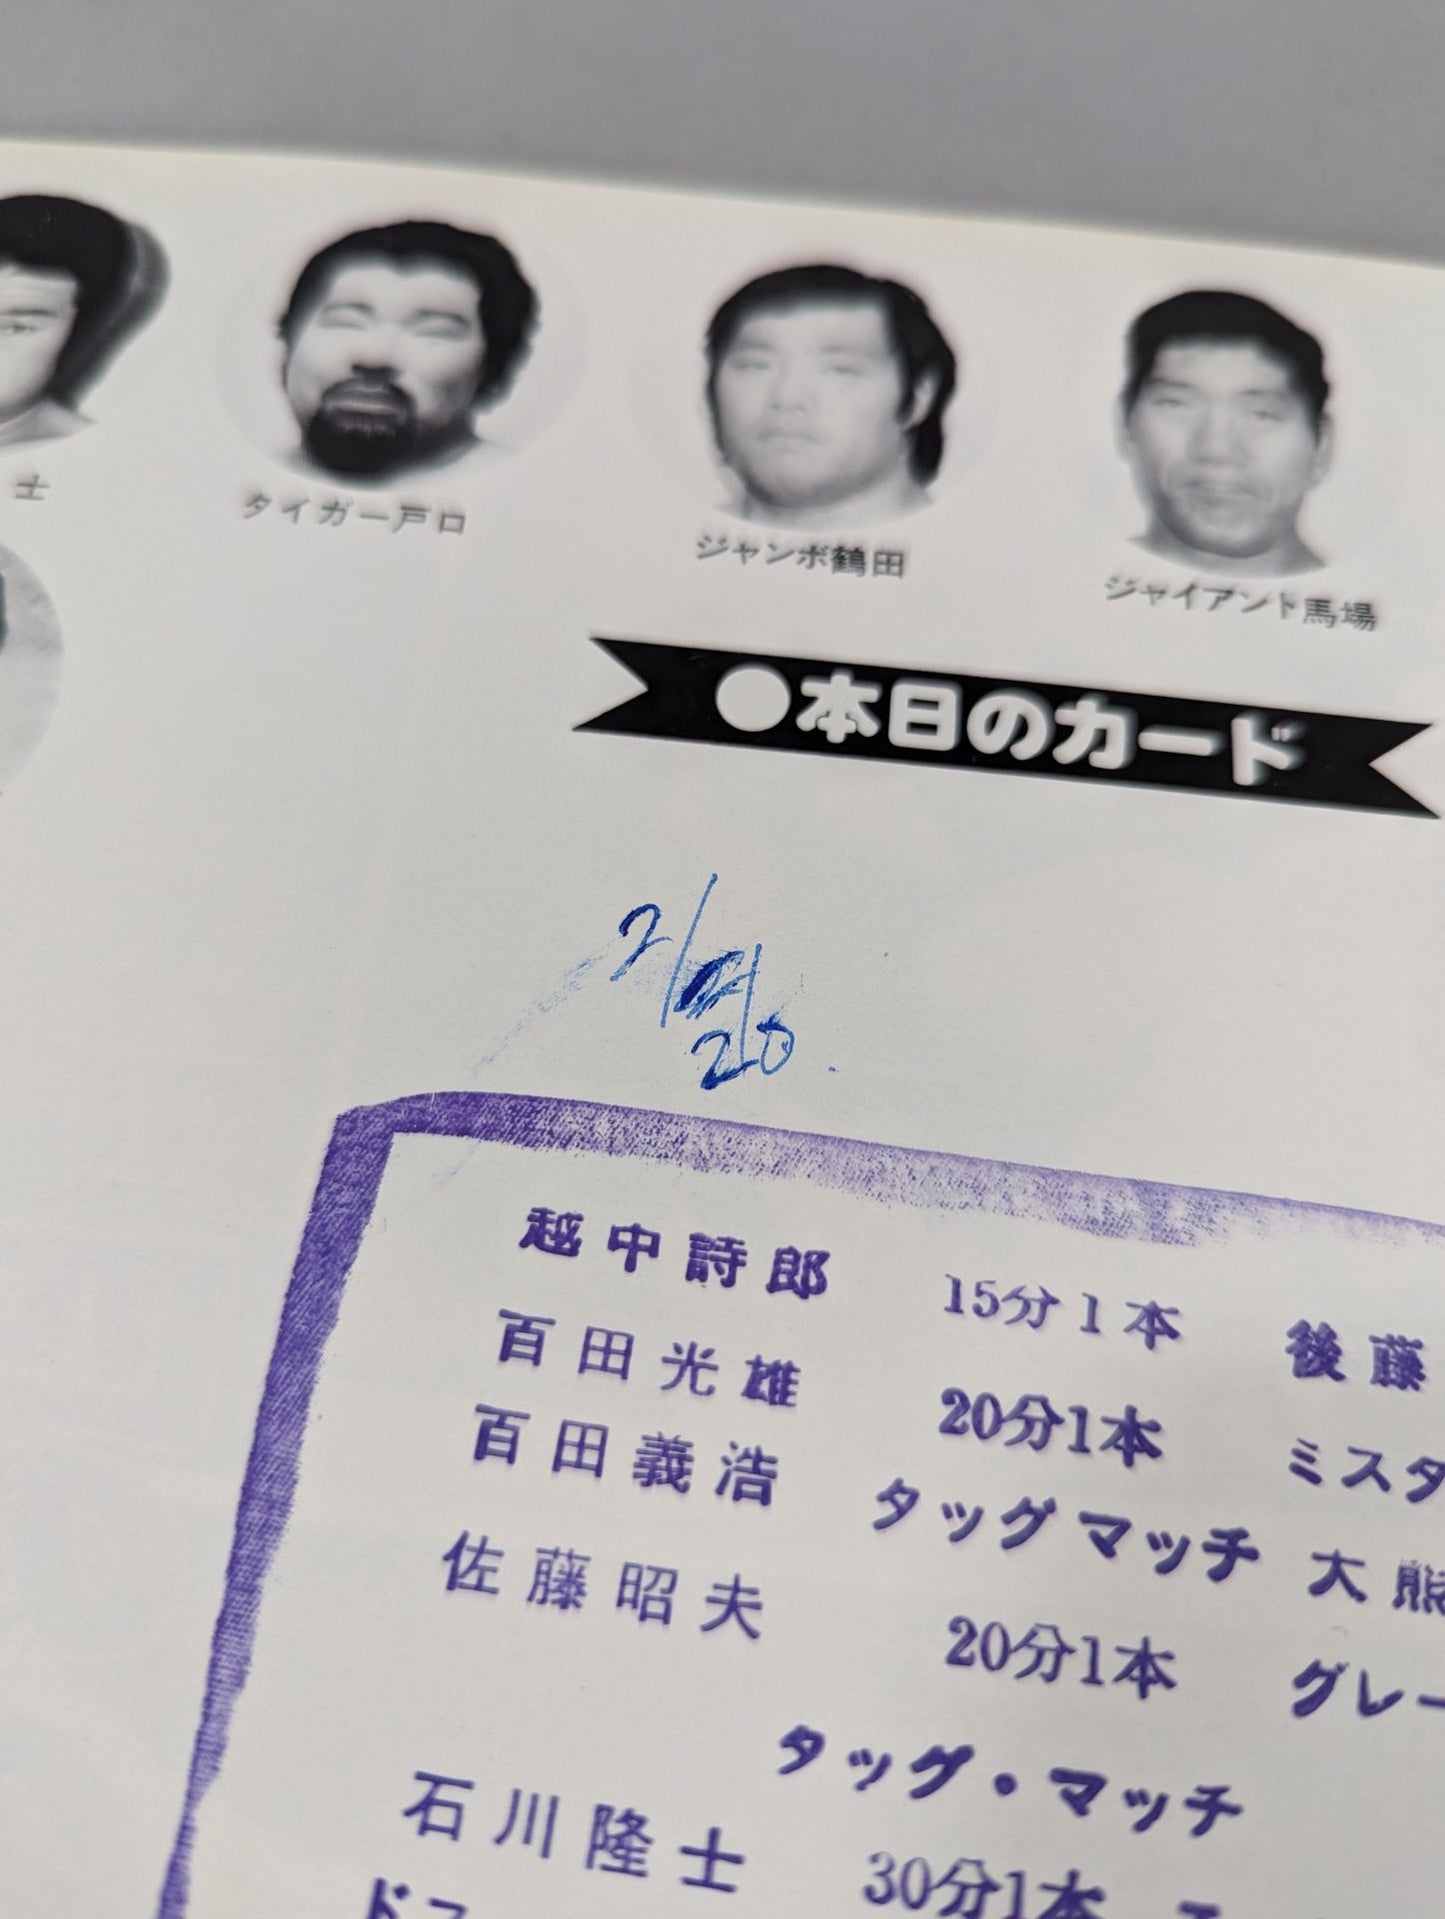 士
タイガー戸口
ジャンボ鶴田
ジャイアント馬場
●本日のカード
2/
20.
越中詩郎 15分1本 後藤
百田光雄 20分1本 ミスタ
百田義浩 タッグマッチ 大熊
佐藤昭夫 20分1本 グレー
タッグ・マッチ
石川隆士 30分1本